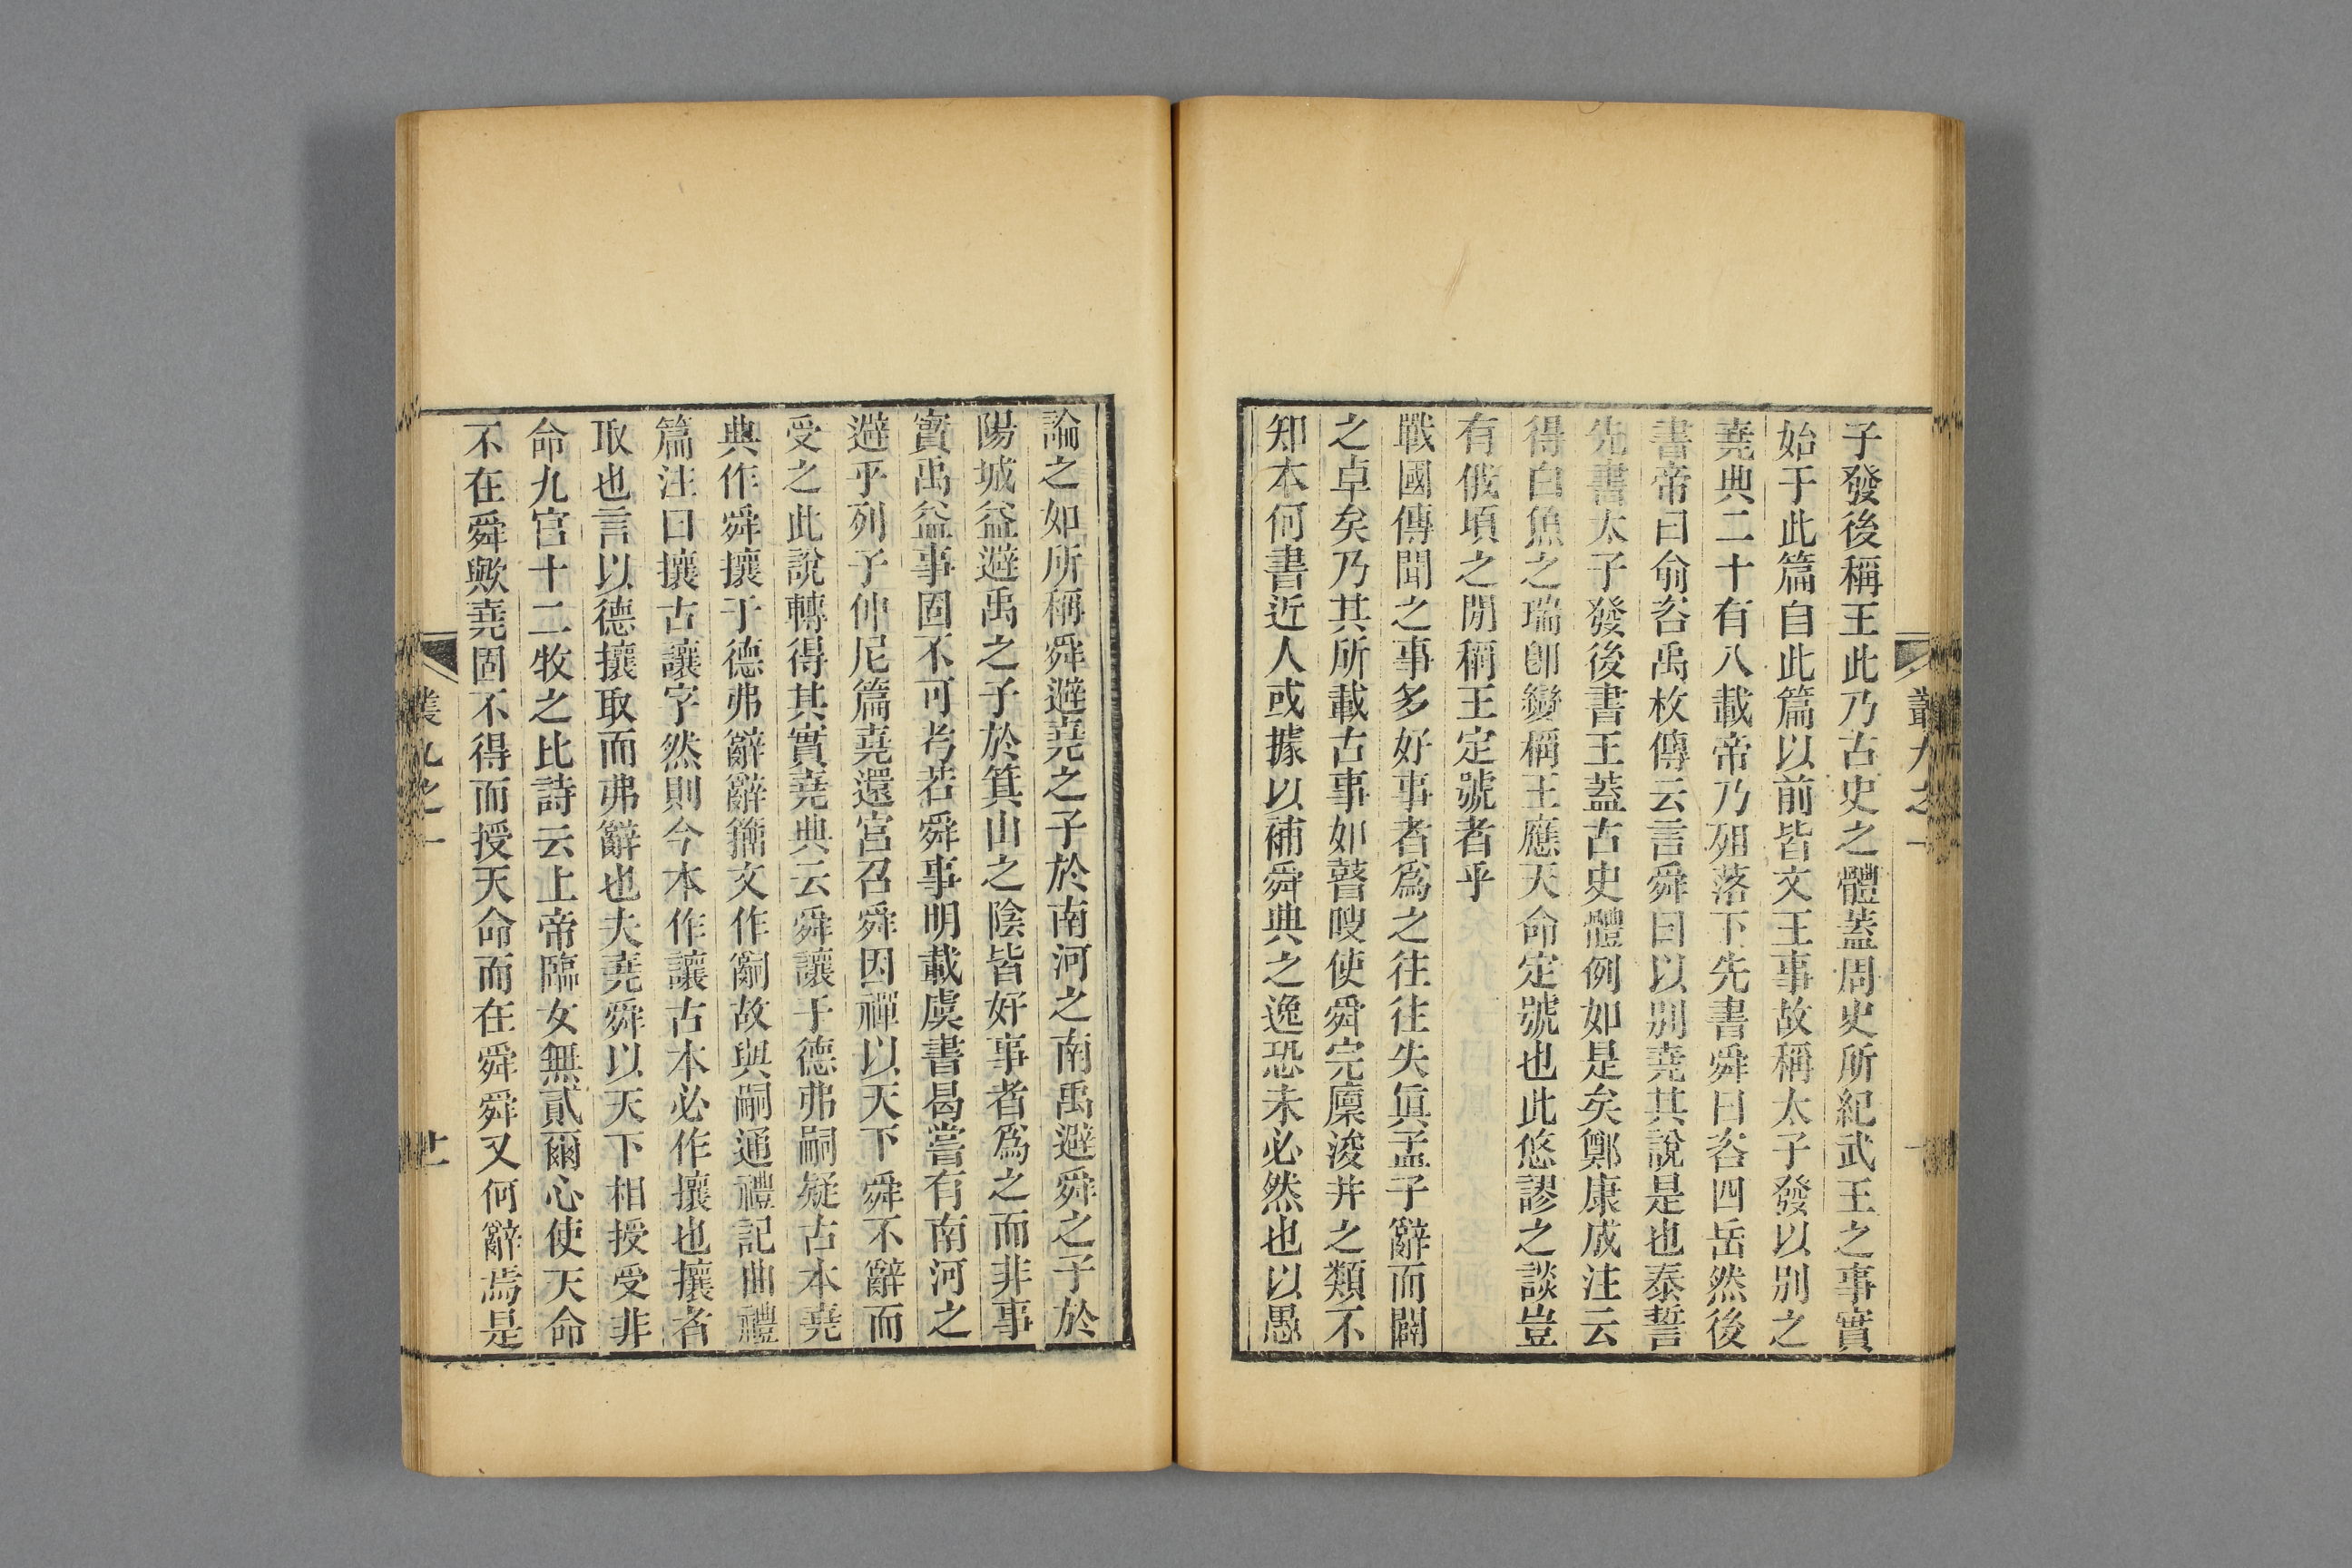 子發後稱王此乃古史之體蓋周史所紀武王之事實
始于此篇自此篇以前皆文王事故稱太子發以別之
堯典二十有八載帝乃殂落下先書舜曰咨四岳然後
書帝曰俞咨禹枚傳云言舜曰以別堯其說是也泰誓
先書太子發後書王蓋古史體例如是矣鄭康成注云
得白魚之瑞卽變稱王應天命定號也此悠謬之談豈
有俄頃之閒稱王定號者乎
戰國傳聞之事多好事者爲之往往失眞孟子辭而闢
之卓矣乃其所載古事如瞽瞍使舜完廩浚井之類不
知本何書近人或據以補舜典之逸恐未必然也以愚
論之如所稱舜避堯之子於南河之南禹避舜之子於
陽城益避禹之子於箕山之陰皆好事者爲之而非事
實禹益事固不可考若舜事明載虞書曷嘗有南河之
避乎列子仲尼篇堯還宮召舜因禪以天下舜不辭而
受之此說轉得其實堯典云舜讓于德弗嗣疑古本堯
典作舜攘于德弗辭辭籀文作嗣故與嗣通禮記曲禮
篇注曰攘古讓字然則今本作讓古本必作攘也攘者
取也言以德攘取而弗辭也夫堯舜以天下相授受非
命九官十二牧之比詩云上帝臨女無貳爾心使天命
不在舜歟堯固不得而授天命而在舜舜又何辭焉是
叢九之一
廿